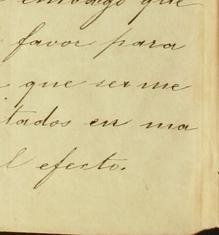 embargo que
favor para
que ser me
tados en ma
l efecto.